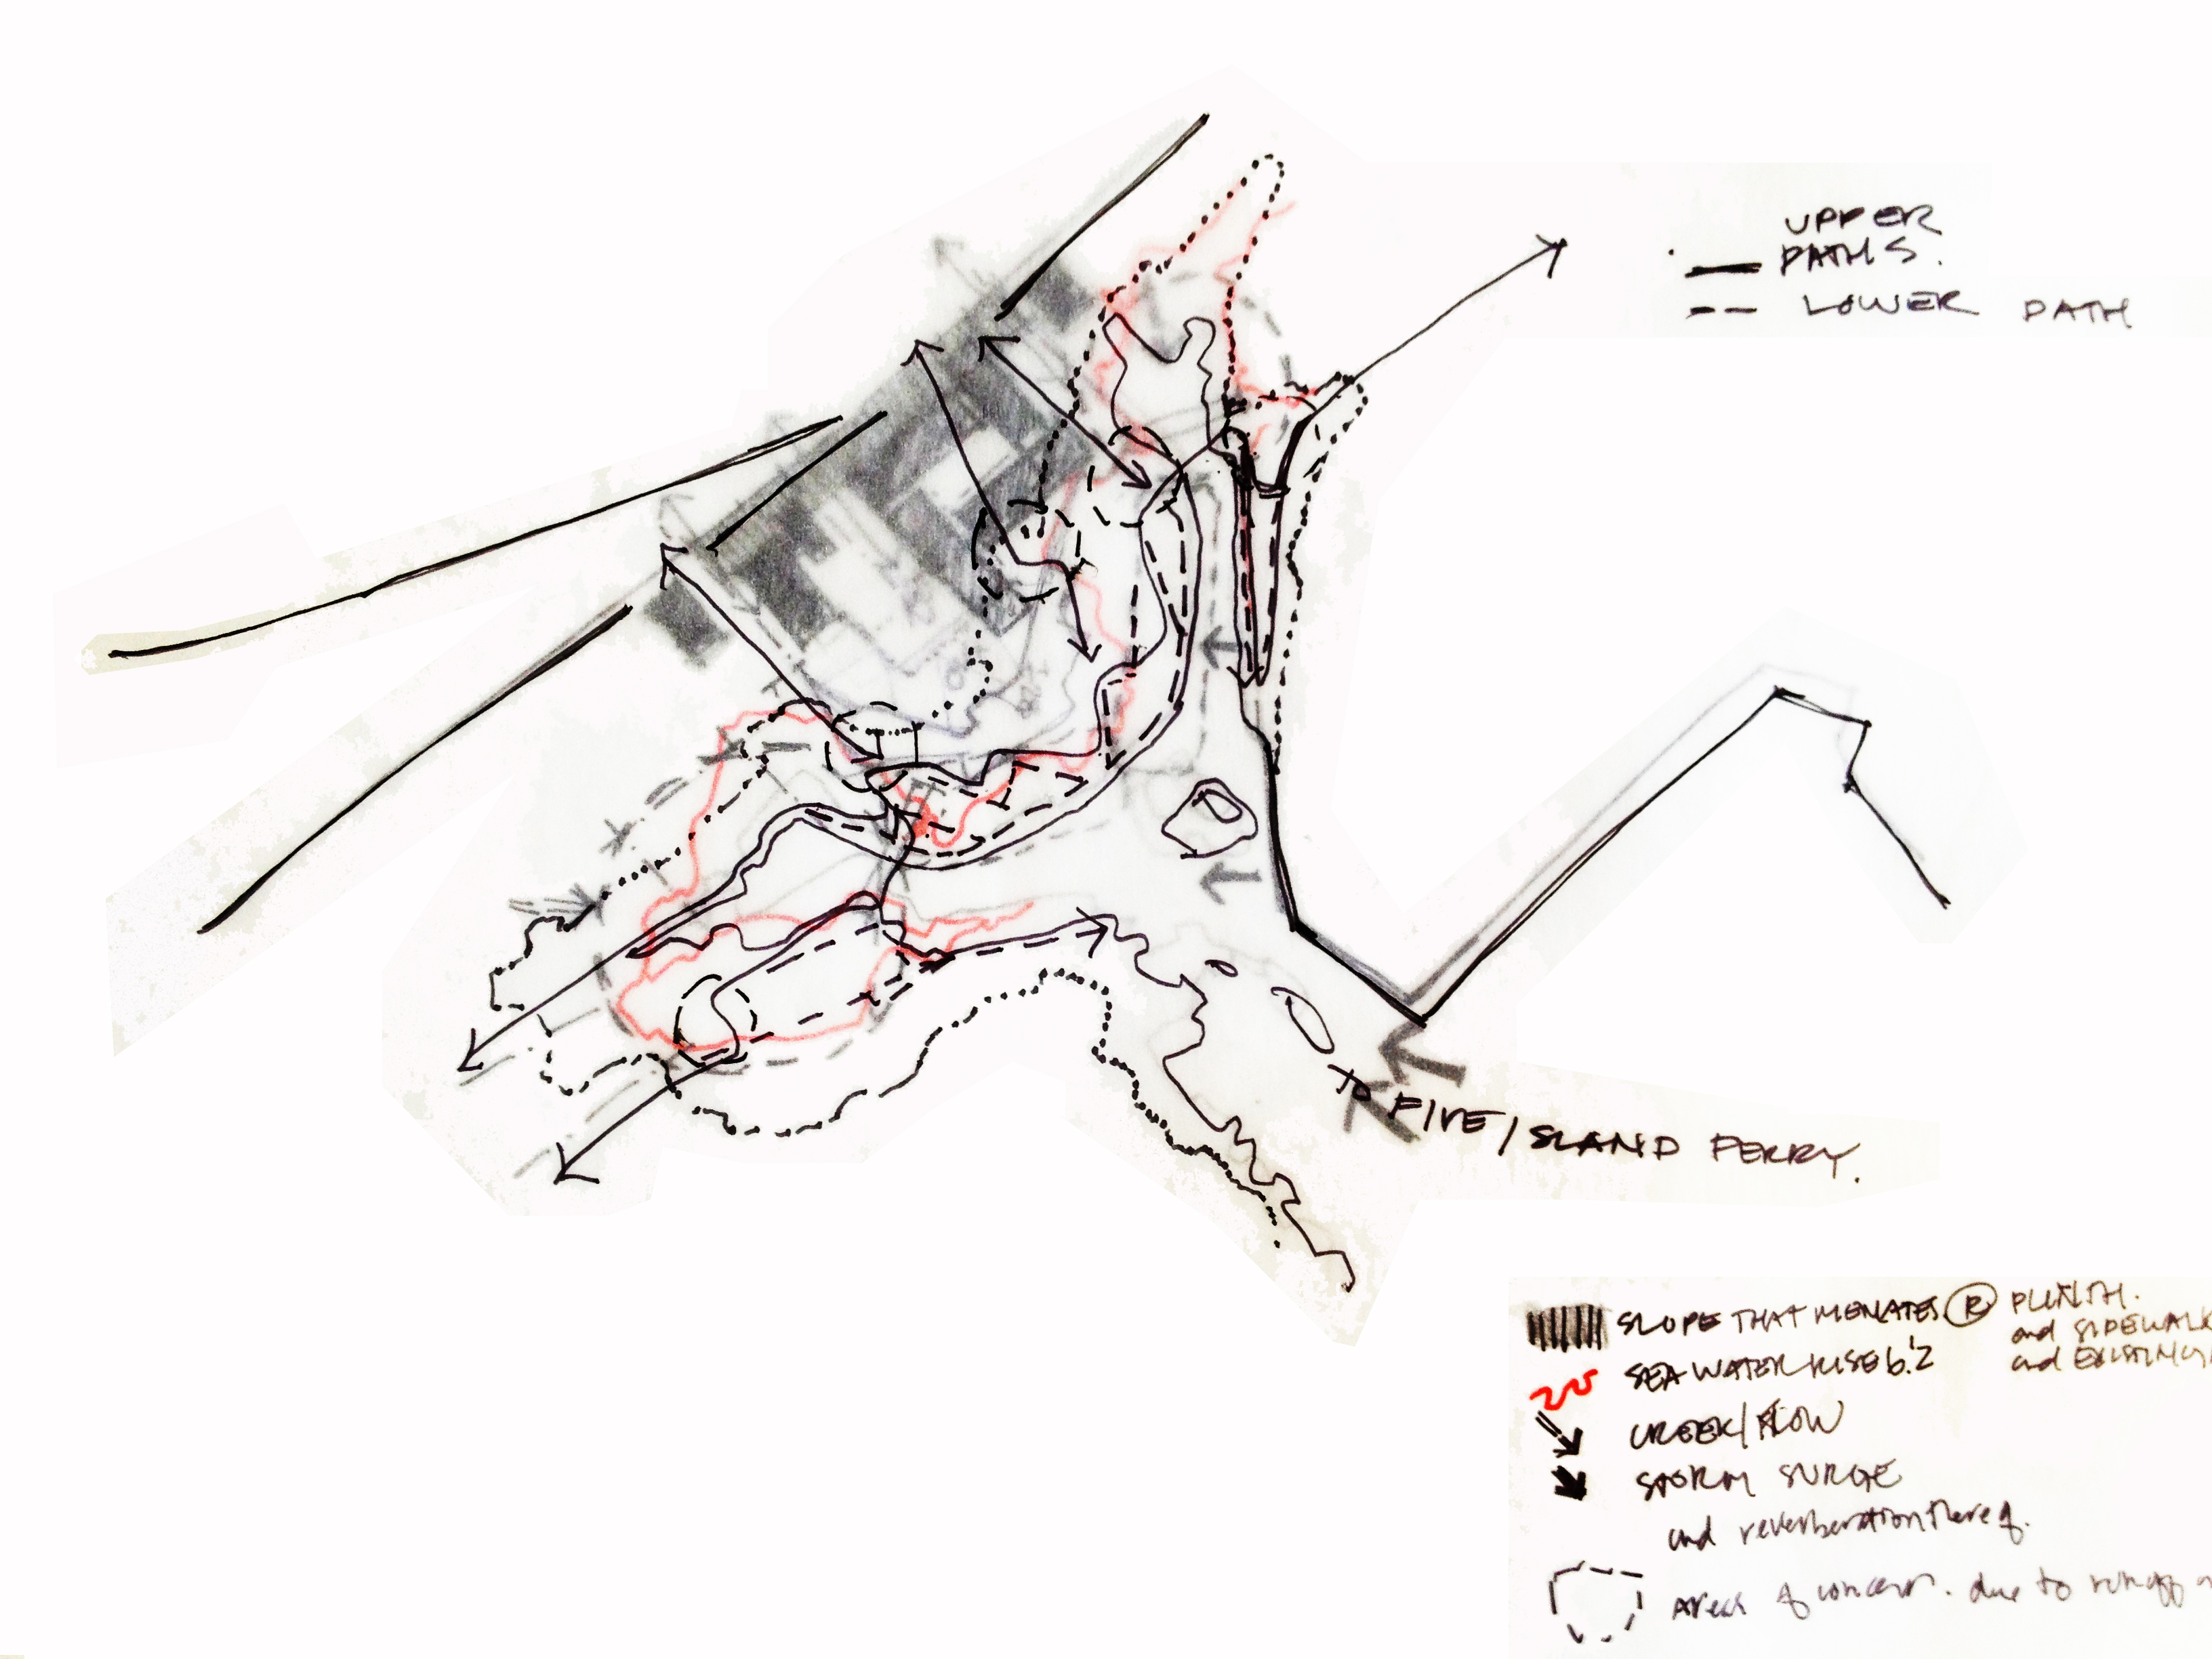 UPPER
PATHS.
LOWER PATH
TO FIVE ISLAND FERRY.
SLOPE THAT R PLINTH.
and SIDEWALK
and EXISTING
SEA WATER RISE 6.'2
CREEK/FLOW
STORM SURGE
and reverberation thereof.
Areas of concern. due to runoff